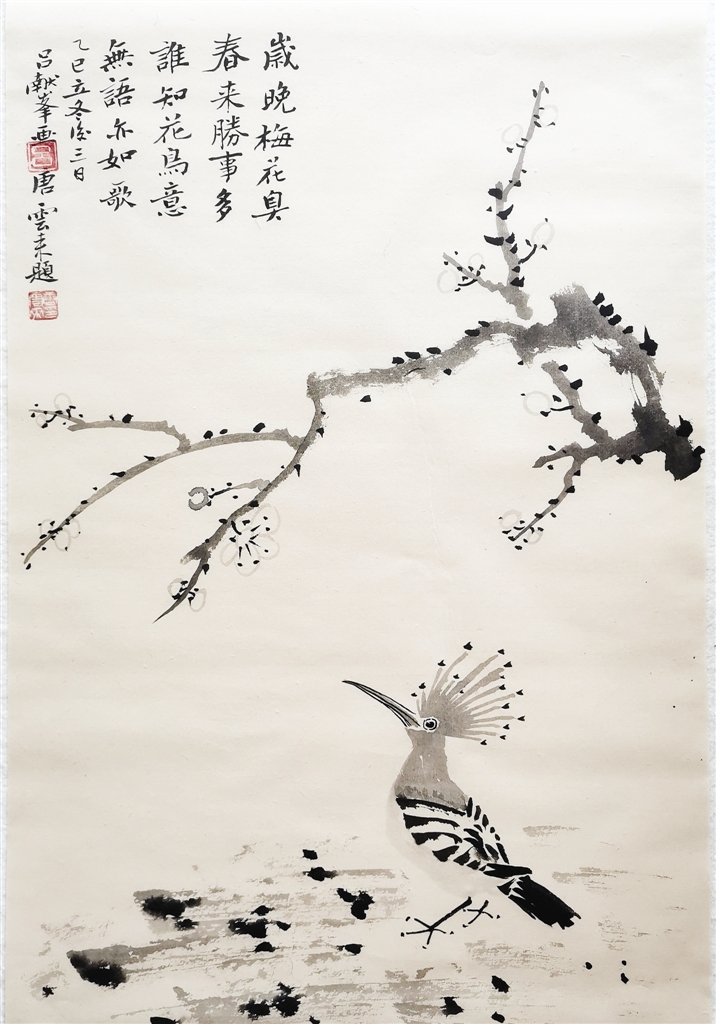 歲晚梅花臭
春来勝事多
誰知花鳥意
無語亦如歌
乙巳立冬後三日
呂献峯画 唐雲来題